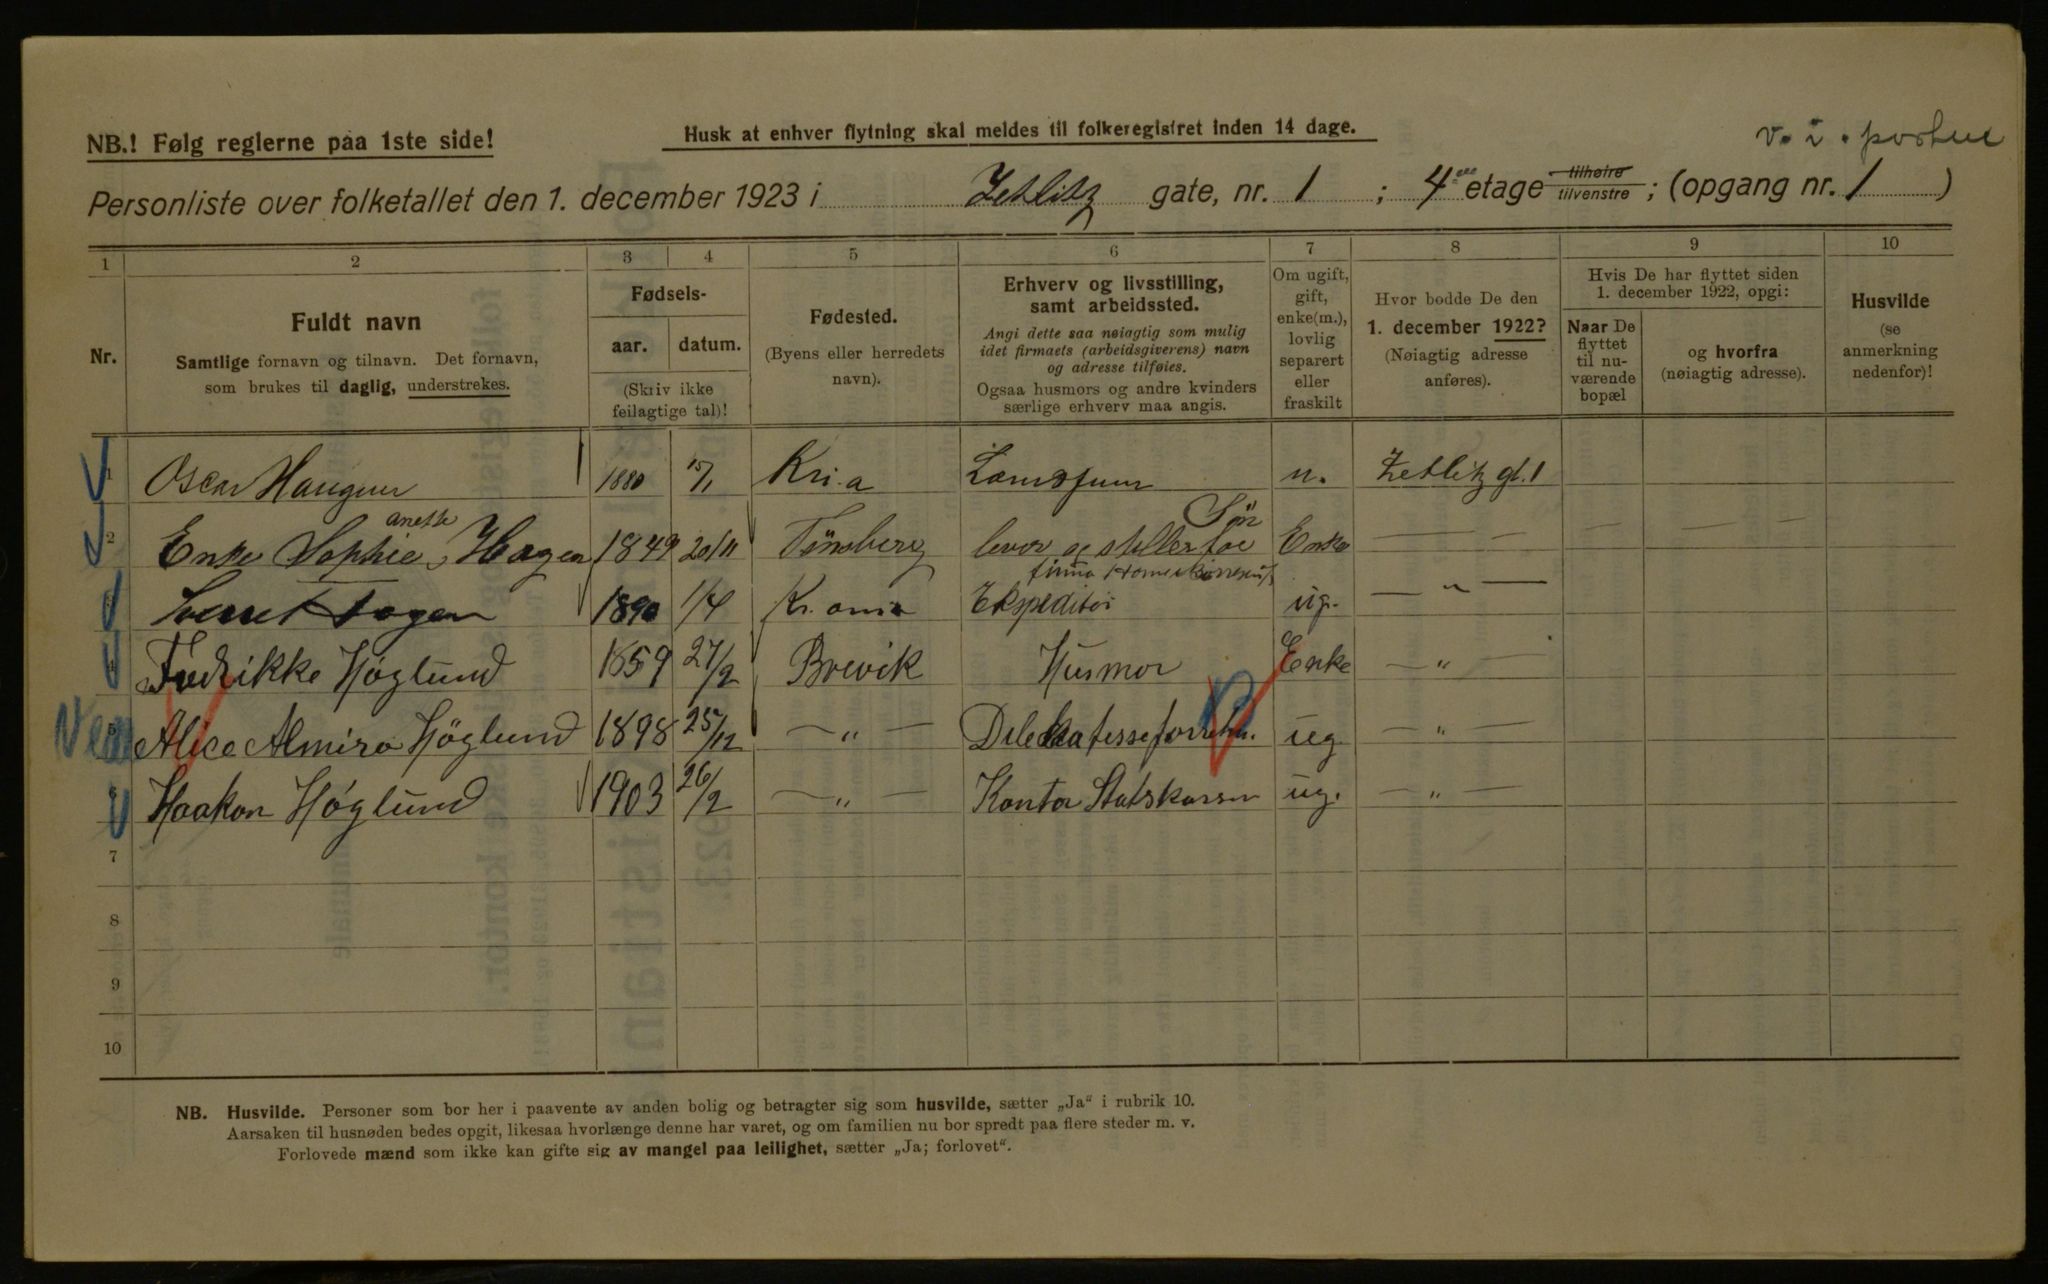 NB.! Følg reglerne paa 1ste side!
Husk at enhver flytning skal meldes til folkeregistret inden 14 dage.
v. i. porten
Personliste over folketallet den 1. december 1923 i Zetlitz gate, nr. 1 ; 4 etage tilhøire tilvenstre ; (opgang nr. 1 )
1 2 3 4 5 6 7 8 9 10
Nr.
Fuldt navn
Samtlige fornavn og tilnavn. Det fornavn,
som brukes til daglig, understrekes.
Fødsels-
aar. datum.
(Skriv ikke
feilagtige tal)!
Fødested.
(Byens eller herredets
navn).
Erhverv og livsstilling,
samt arbeidssted.
Angi dette saa nøiagtig som mulig
idet firmaets (arbeidsgiverens) navn
og adresse tilføies.
Ogsaa husmors og andre kvinders
særlige erhverv maa angis.
Om ugift,
gift,
enke(m.),
lovlig
separert
eller
fraskilt
Hvor bodde De den
1. december 1922?
(Nøiagtig adresse
anføres).
Hvis De har flyttet siden
1. december 1922, opgi:
Naar De
flyttet
til nu-
værende
bopæl
og hvorfra
(nøiagtig adresse).
Husvilde
(se
anmerkning
nedenfor)!
1 Oscar Haugen 1880 15/1 Kri.a u. Zetlitz gt. 1
2 Enke Sophie Anette Hagen 1849 20/11 Tönsberg lever og steller for Sön Enke — —
Hagen 1890 1/4 Kr.ania Ekspeditör firma ug. — " —
4 Fredrikke Høglund 1859 27/2 Brevik Husmor Enke — " —
5 Alice Almira Höglund 1898 25/12 — " — ug. — " —
6 Haakon Høglund 1903 26/2 — " — Kontor Statskassen ug. — " —
7
8
9
10
NB. Husvilde. Personer som bor her i paavente av anden bolig og betragter sig som husvilde, sætter „Ja“ i rubrik 10.
Aarsaken til husnøden bedes opgit, likesaa hvorlænge denne har varet, og om familien nu bor spredt paa flere steder m. v.
Forlovede mænd som ikke kan gifte sig av mangel paa leilighet, sætter „Ja; forlovet“.